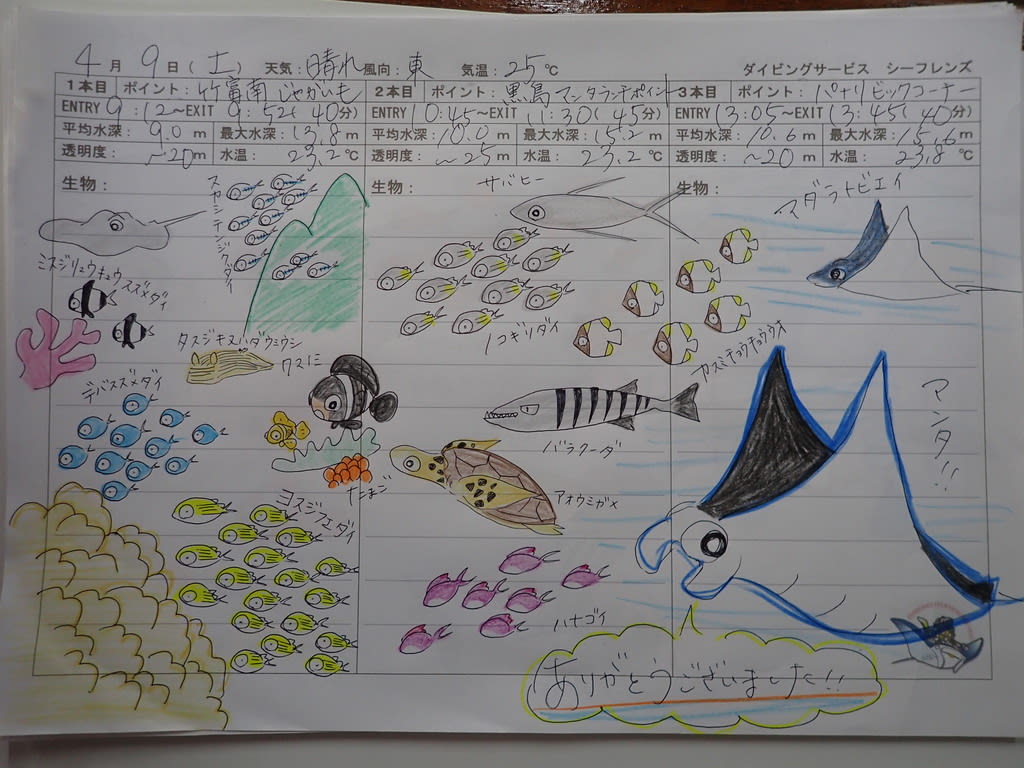 4月 9日(土) 天気:晴れ 風向:東 気温:25℃ ダイビングサービス シーフレンズ
1本目 ポイント:竹富南じゃがいも 2本目 ポイント:黒島マンタランチポイント 3本目 ポイント:パナリビッグコーナー
ENTRY 9:12~EXIT 9:52(40分) ENTRY 10:45~EXIT 11:30(45分) ENTRY 13:05~EXIT 13:45(40分)
平均水深:9.0m 最大水深:13.8m 平均水深:10.0m 最大水深:15.2m 平均水深:10.6m 最大水深:15.6m
透明度:~20m 水温:23.2℃ 透明度:~25m 水温:23.2℃ 透明度:~20m 水温:23.8℃
生物: 生物: 生物:
スカシテンジクダイ
サバヒー
マダラトビエイ
ミスジリュウキュウスズメダイ
ノコギリダイ
タスジミスバダウミウシ
クマノミ
アケボノチョウチョウウオ
デバスズメダイ
マンタ!!
バラクーダ
たまご
アオウミガメ
ヨスジフエダイ
ハナゴイ
ありがとうございました!!